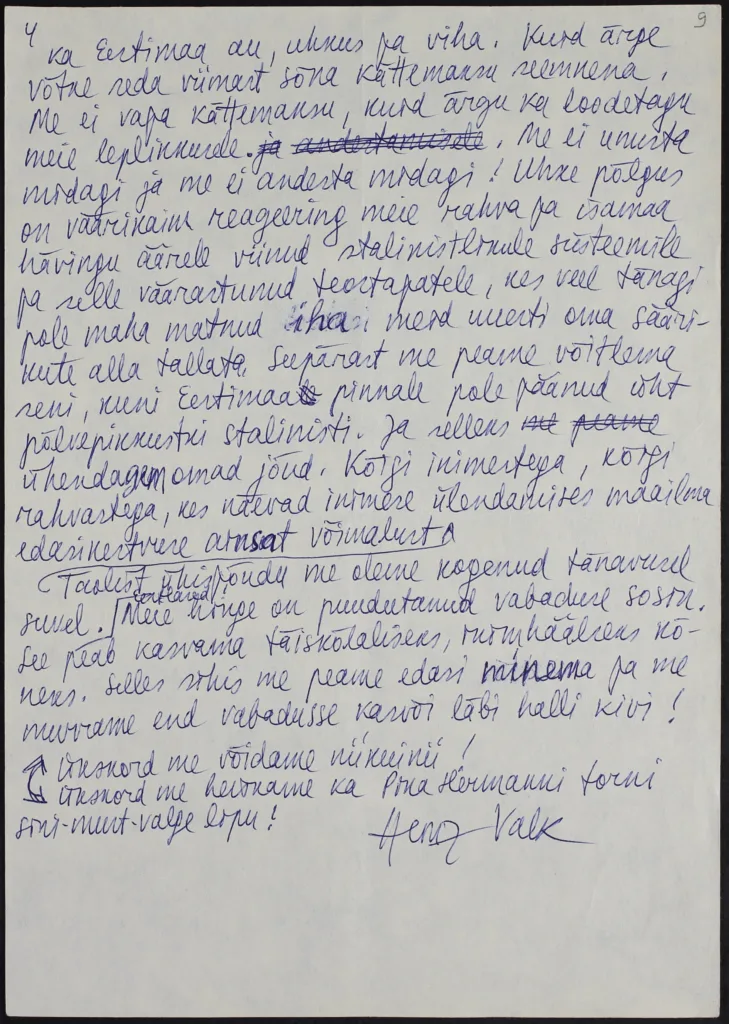 4
9
ka Eestimaa au, uhkus ja viha. Kuid ärge
võtke seda viimast sõna kättemaksu seemnena.
Me ei vaja kättemaksu, kuid ärgu ka loodetagu
meie leplikkusele. ja andestamisele. Me ei unusta
midagi ja me ei andesta midagi! Uhke põlgus
on väärikaim reageering meie rahva ja isamaa
hävingu äärele viinud stalinistlikule süsteemile
ja selle väärastunud teostajatele, kes veel tänagi
pole maha matnud iha meid uuesti oma sääri-
kute alla tallata. Seepärast me peame võitlema
seni, kuni Eestimaa pinnale pole jäänud üht
põlvepikkustki stalinisti. Ja selleks me peame
ühendagem omad jõud. Kõigi inimestega, kõigi
rahvastega, kes näevad inimese ülendamises maailma
edasikestvuse ainsat võimalust.
Taolist ühisjõudu me oleme kogenud tänavusel
suvel. Meie eestlaste hinge on puudutanud vabaduse sosin.
See peab kasvama täiskõlaliseks, inimhäälseks kõ-
neks. Selles sihis me peame edasi minema ja me
murrame end vabadusse kasvõi läbi halli kivi!
Ükskord me võidame niikuinii!
Ükskord me heiskame ka Pika Hermanni torni
sini-must-valge lipu!
Heinz Valk